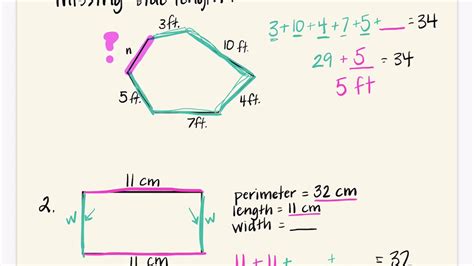 missing side length?
3ft.
?
n
10 ft.
5ft.
4ft.
7ft.
3+10+4+7+5+__=34
29 + 5 = 34
5 ft
2.
11 cm
W
W
11 cm
perimeter = 32 cm
length = 11 cm
width = __
11 + 11 + = 32